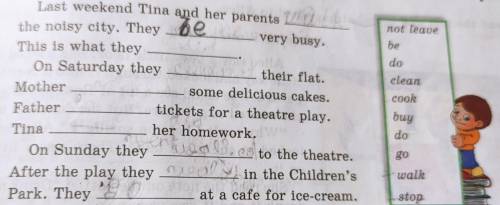 Last weekend Tina and her parents ______ not leave
the noisy city. They be very busy. be
This is what they ______. do
On Saturday they ______ their flat. clean
Mother ______ some delicious cakes. cook
Father ______ tickets for a theatre play. buy
Tina ______ her homework. do
On Sunday they ______ to the theatre. go
After the play they ______ in the Children's walk
Park. They ______ at a cafe for ice-cream. stop